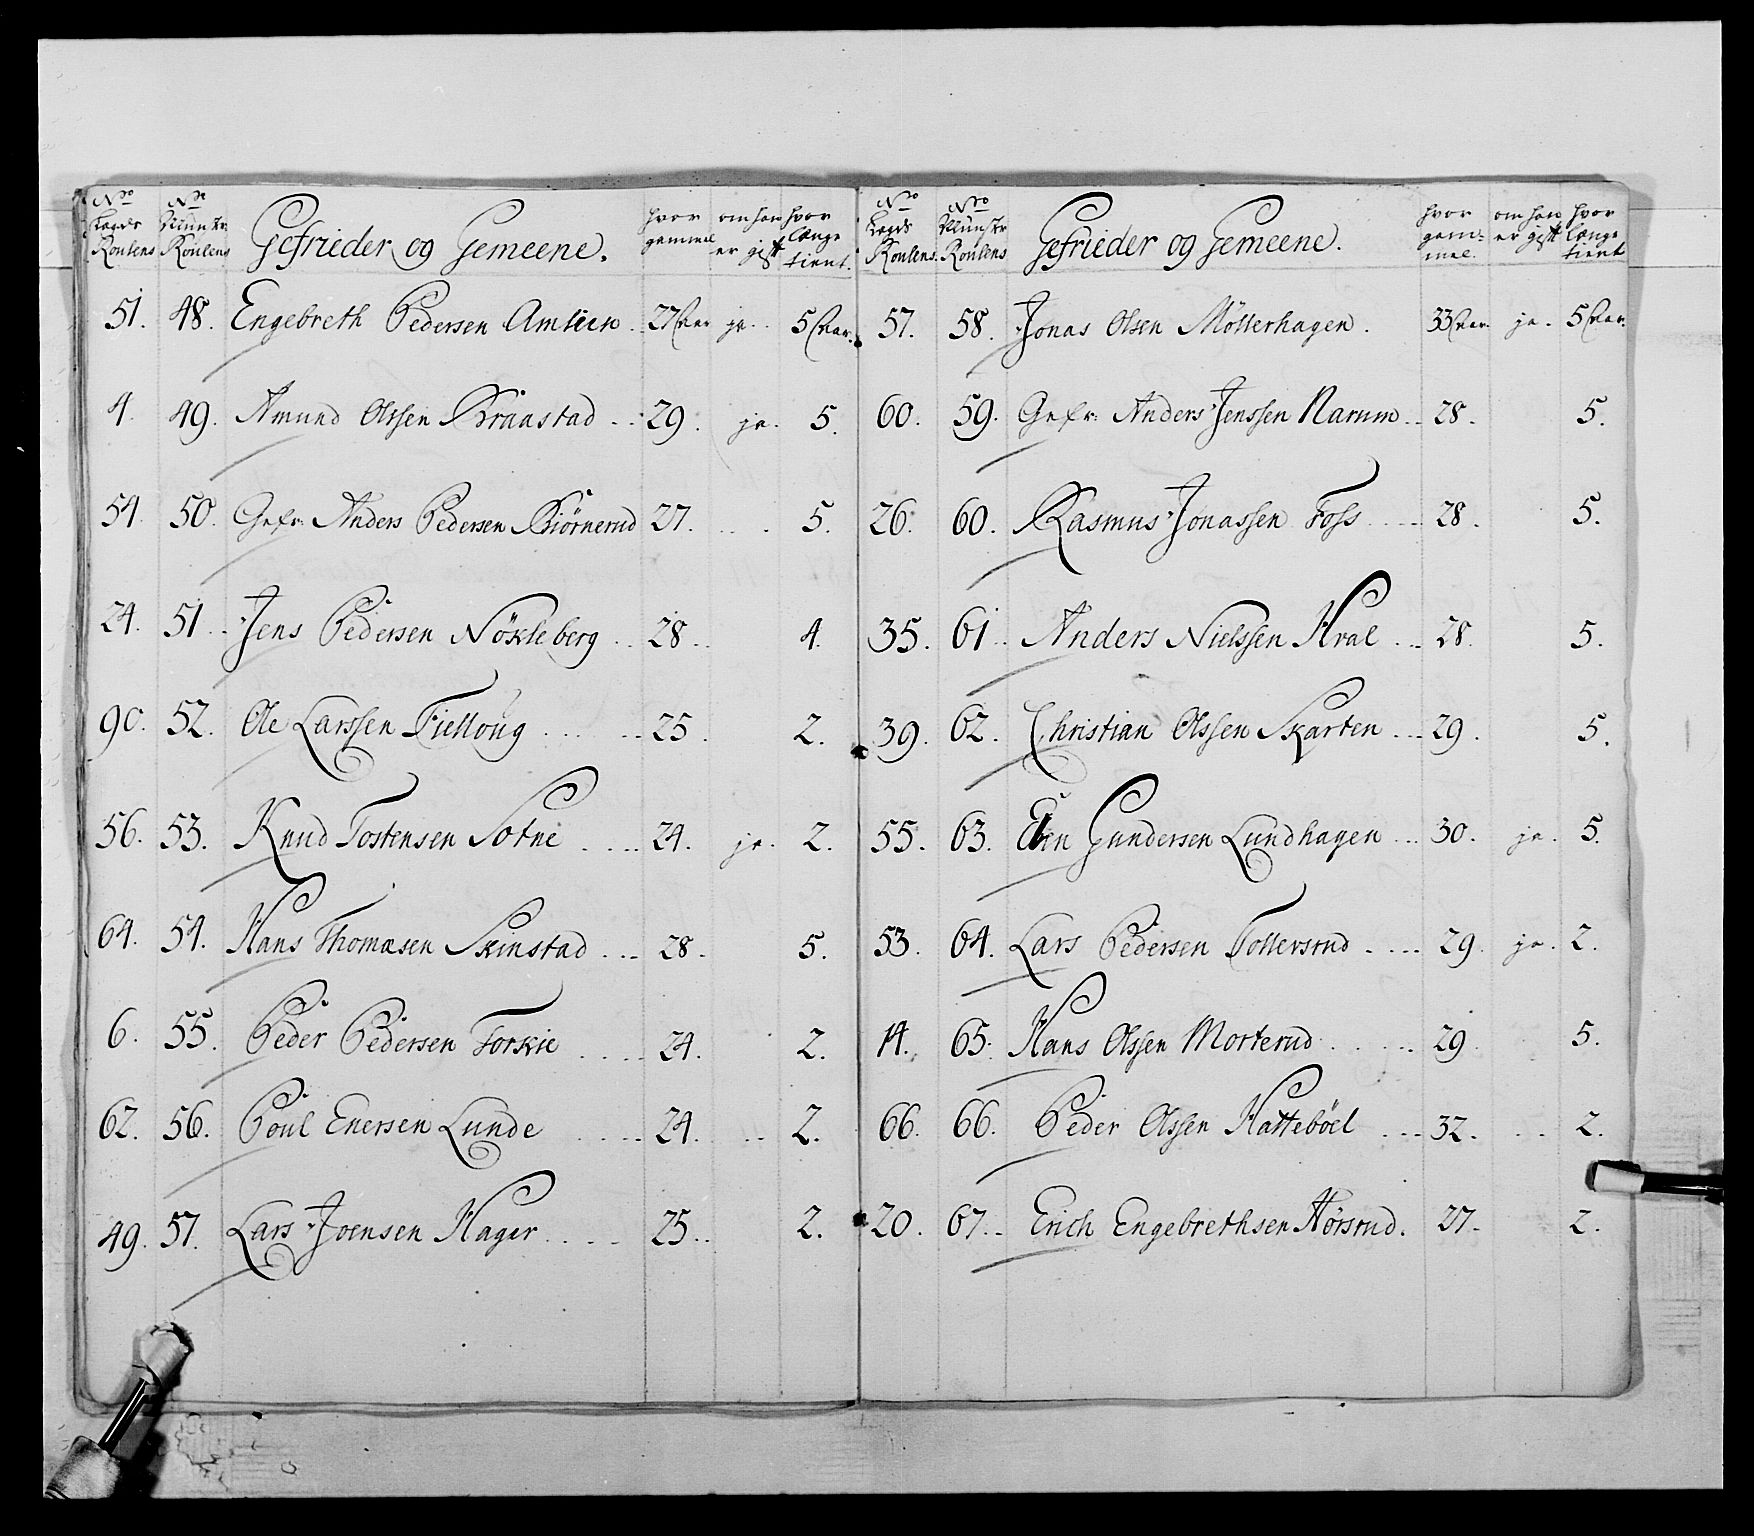 No Lægds Roulens No Munstr Roulens Gefrieder og Gemeene. hvor gammel om han er gift hvor længe tient.
51. 48. Engebreth Pedersen Amlien. 27 Aar ja. 5 Aar.
4. 49. Amund Olssen Braastad 29. ja. 5.
54. 50. Gefr: Anders Pedersen Biörnerud 27. 5.
24. 51. Jens Pedersen Nökleberg 28. 4.
90. 52. Ole Larssen Fielloug 25. 2.
56. 53. Knud Tostensen Sotne 24. ja. 2.
64. 54. Hans Thomæsen Skinstad 28. 5.
6. 55. Peder Pedersen Forskie 24. 2.
62. 56. Poul Enersen Lunde 24. 2.
49. 57. Lars Joensen Hager 25. 2.
No Lægds Roulens No Munstr Roulens Gefrieder og Gemeene. hvor gammel. om han er gift hvor længe tient
57. 58. Jonas Olsen Möllerhagen. 33 Aar. ja. 5 Aar.
60. 59. Gefr: Anders Jenssen Narum 28. 5.
26. 60. Rasmus Jonassen Foss 28. 5.
35. 61. Anders Nielssen Hval 28. 5.
39. 62. Christian Olssen Skarten 29. 5.
55. 63. Gundersen Lundhagen 30. ja. 5.
53. 64. Lars Pedersen Tollersrud 29. ja. 2.
14. 65. Hans Olssen Morterud 29 5.
66. 66. Peder Olssen Hatteböel 32. 2.
20. 67. Erich Engebrethsen Hörsrud. 27. 2.